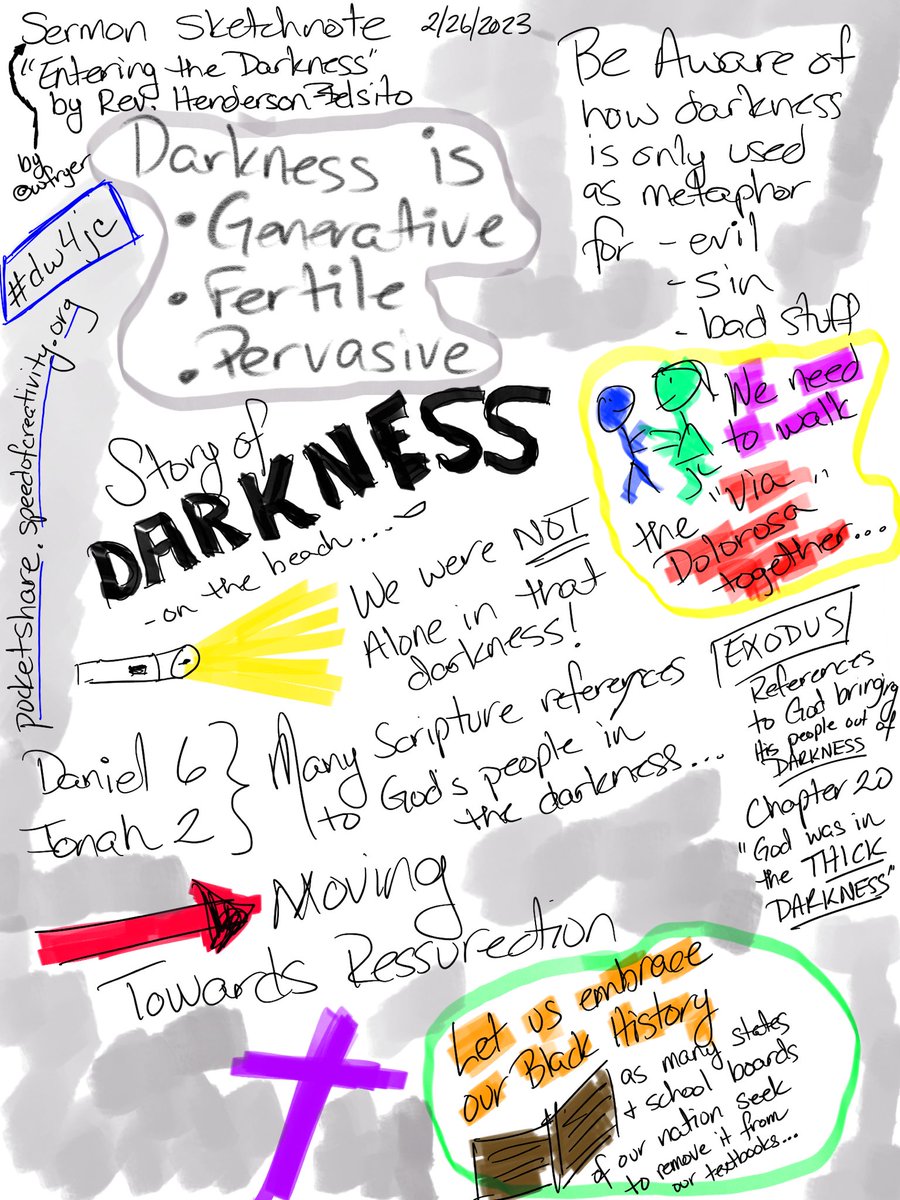 Sermon Sketchnote 2/26/2023
"Entering the Darkness"
by Rev. Henderson-Belsito
by
@wfryer
#dw4jc
pocketshare.speedofcreativity.org
Darkness is
• Generative
• Fertile
• Pervasive
Be Aware of
how darkness
is only used
as metaphor
for - evil
- sin
- bad stuff
We need
to walk
the "Via
Dolorosa"
together...
Story of
DARKNESS
- on the beach....
We were NOT
Alone in that
darkness!
Daniel 6
Jonah 2
Many Scripture references
to God's people in
the darkness...
EXODUS
References
to God bringing
His people out of
DARKNESS
Chapter 20
"God was in
the THICK
DARKNESS"
Moving
Towards Ressurection
Let us embrace
our Black History
as many states
+ school boards
of our nation seek
to remove it from
our textbooks...